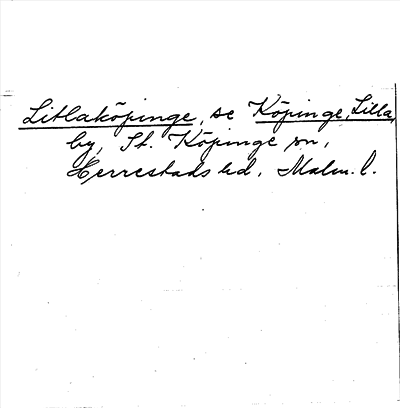 Litlaköpinge, se Köpinge, Lilla,
by, St. Köpinge sn,
Herrestads hd, Malm. l.